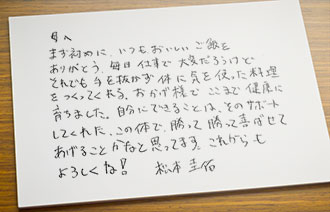 母へ
まず初めに、いつもおいしいご飯を
ありがとう。毎日仕事で大変だろうけど
それでも手を抜かず体に気を使った料理
をつくってくれる。おかげ様でここまで健康に
育ちました。自分にできることは、そのサポート
してくれた、この体で、勝って勝って喜ばせて
あげることかなと思ってます。これからも
よろしくね! 松本圭佑